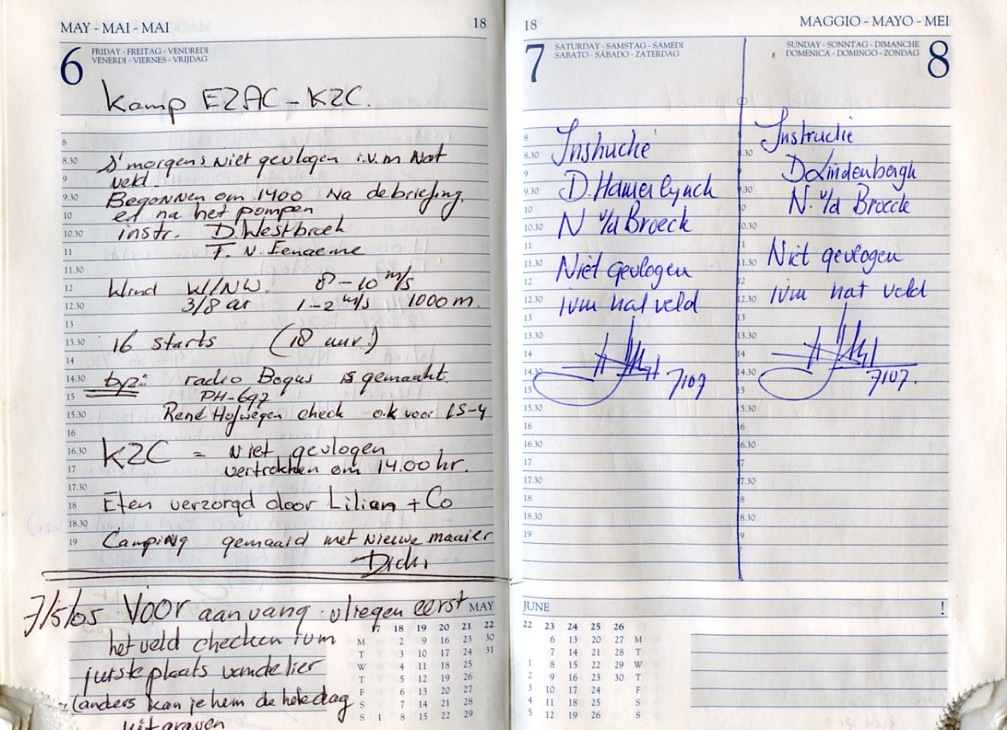 MAY - MAI - MAI 18
6 FRIDAY - FREITAG - VENDREDI
VENERDI - VIERNES - VRIJDAG
Kamp EZAC - KZC.
8
8.30 S'morgens Niet gevlogen i.v.m Nat
9 veld.
9.30 Begonnen om 1400 Na debriefing.
10 en na het pompen
10.30 instr. D. Westbroek
11 F. v.
11.30
12 Wind W/NW. 8-10 m/s
12.30 3/8 1-2 m/s 1000 m.
13
13.30 16 starts (18 uur.)
14
14.30 byz: radio Bogus is gemaakt.
15 PH-697
15.30 René Hofwegen check o.k voor LS-4
16
16.30 KZC = Niet gevlogen
17 vertrokken om 14.00 hr.
17.30
18 Eten verzorgd door Lilian + Co
18.30
19 Camping gemaaid met Nieuwe maaier
7/5/05 Voor aanvang vliegen eerst
het veld checken ivm
juiste plaats van de lier
(anders kan je hem de hele dag
uitgraven
MAY
17 18 19 20 21 22
M 2 9 16 23 30
T 3 10 17 24 31
W 4 11 18 25
T 5 12 19 26
F 6 13 20 27
S 7 14 21 28
S 1 8 15 22 29
18 MAGGIO - MAYO - MEI
7 SATURDAY - SAMSTAG - SAMEDI
SABATO - SÁBADO - ZATERDAG
8
8.30 Instructie
9
9.30 D. Hamerlynck
10
10.30 N v/d Broeck
11
11.30 Niet gevlogen
12
12.30 ivm nat veld
13
13.30
14
14.30 7107
15
15.30
16
16.30
17
17.30
18
18.30
19
SUNDAY - SONNTAG - DIMANCHE 8
DOMENICA - DOMINGO - ZONDAG
Instructie
D Lindenbergh
N. v/d Broeck
Niet gevlogen
ivm nat veld
7107.
JUNE !
22 23 24 25 26
6 13 20 27 M
7 14 21 28 T
1 8 15 22 29 W
2 9 16 23 30 T
3 10 17 24 F
4 11 18 25 S
5 12 19 26 S